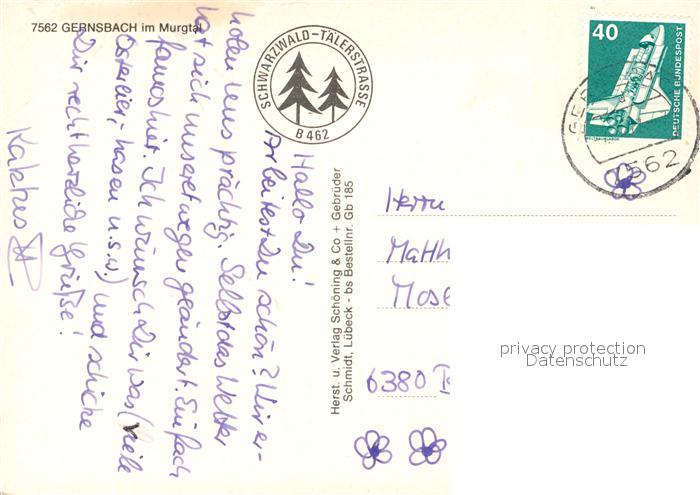 7562 GERNSBACH im Murgtal
SCHWARZWALD-TÄLERSTRASSE
B 462
40
DEUTSCHE BUNDESPOST
7562
Hallo Du!
Arbeitest Du schön? Wir er-
holen uns prächtig. Selbst das Wetter
hat sich unseretwegen geändert. Einfach
famos hier. Ich wünsch Dir was (viele
Ostereier, -hasen u.s.w.) und schicke
Dir recht herzliche Grüße!
Kaktus
Herst. u. Verlag Schöning & Co + Gebrüder
Schmidt, Lübeck - bs Bestellnr. Gb 185
Herrn
Matth
Mose
6380
privacy protection
Datenschutz